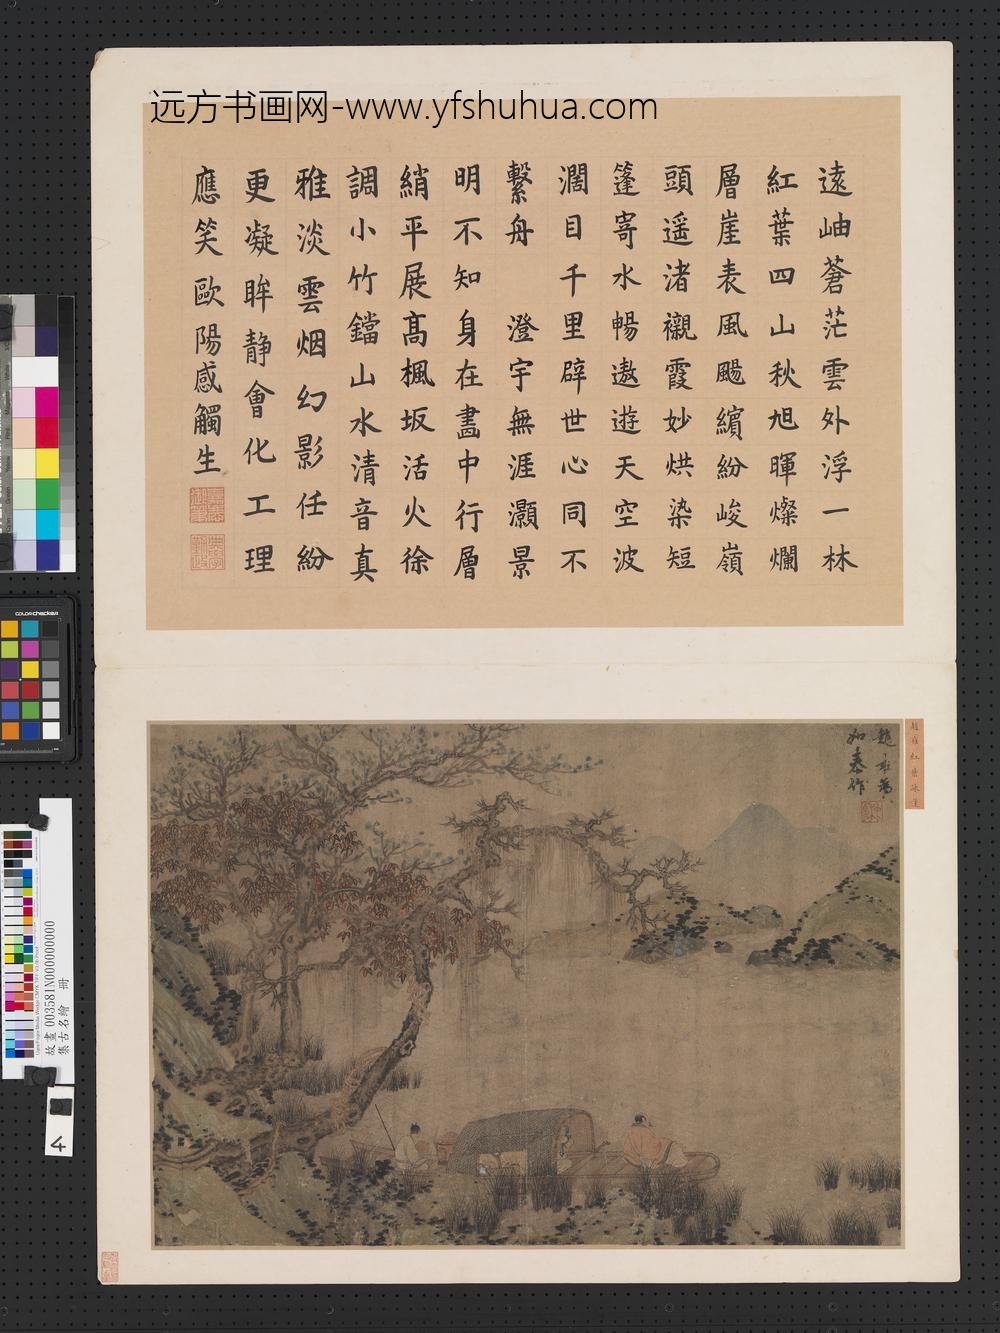 远方书画网-www.yfshuhua.com
遠岫蒼茫雲外浮一林
紅葉四山秋旭暉燦爛
層崖表風颺繽紛峻嶺
頭遥渚襯霞妙烘染短
篷寄水暢遨遊天空波
濶目千里辟世心同不
繫舟 澄宇無涯灝景
明不知身在畵中行層
綃平展髙楓坂活火徐
調小竹鐺山水清音真
雅淡雲烟幻影任紛
更凝眸静會化工理
應笑歐陽感觸生
colorchecker
故畫 003581N000000000
集古名繪 冊
4